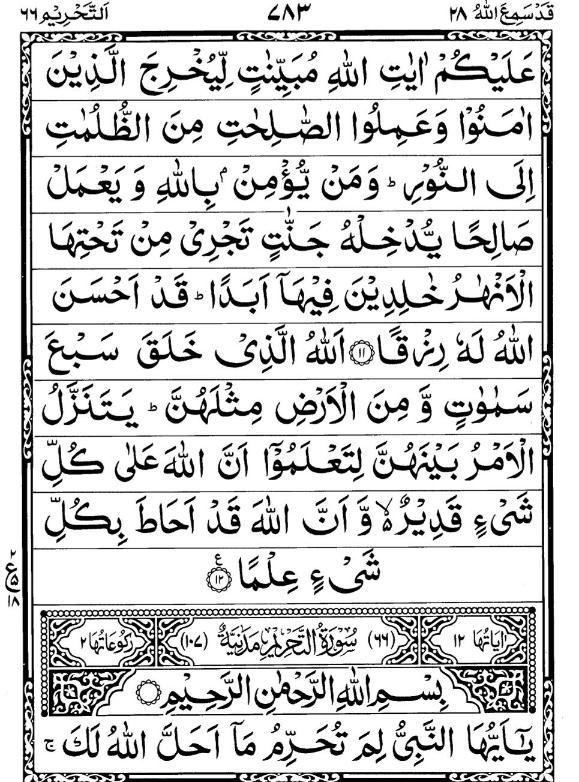 قَدْ سَمِعَ اللّٰهُ ٢٨ ٧٨٣ اَلتَّحْرِيْم ٦٦
عَلَيْكُمْ اٰيٰتِ اللّٰهِ مُبَيِّنٰتٍ لِّيُخْرِجَ الَّذِيْنَ
اٰمَنُوْا وَعَمِلُوا الصّٰلِحٰتِ مِنَ الظُّلُمٰتِ
اِلَى النُّوْرِ ؕ وَمَنْ يُّؤْمِنْۢ بِاللّٰهِ وَ يَعْمَلْ
صَالِحًا يُّدْخِلْهُ جَنّٰتٍ تَجْرِيْ مِنْ تَحْتِهَا
الْاَنْهٰرُ خٰلِدِيْنَ فِيْهَاۤ اَبَدًا ؕ قَدْ اَحْسَنَ
اللّٰهُ لَهٗ رِزْقًا ﴿١١﴾ اَللّٰهُ الَّذِيْ خَلَقَ سَبْعَ
سَمٰوٰتٍ وَّ مِنَ الْاَرْضِ مِثْلَهُنَّ ؕ يَتَنَزَّلُ
الْاَمْرُ بَيْنَهُنَّ لِتَعْلَمُوْۤا اَنَّ اللّٰهَ عَلٰى كُلِّ
شَيْءٍ قَدِيْرٌ ۙ٥ وَّ اَنَّ اللّٰهَ قَدْ اَحَاطَ بِكُلِّ
شَيْءٍ عِلْمًا ﴿١٢﴾ ع
٢ ع ٥ ١٨
اٰيَاتُهَا ١٢ (٦٦) سُوْرَةُ التَّحْرِيْمِ مَدَنِيَّةٌ (١٠٧) رُكُوْعَاتُهَا ٢
بِسْمِ اللّٰهِ الرَّحْمٰنِ الرَّحِيْمِ
يٰۤاَيُّهَا النَّبِيُّ لِمَ تُحَرِّمُ مَاۤ اَحَلَّ اللّٰهُ لَكَ ۚ